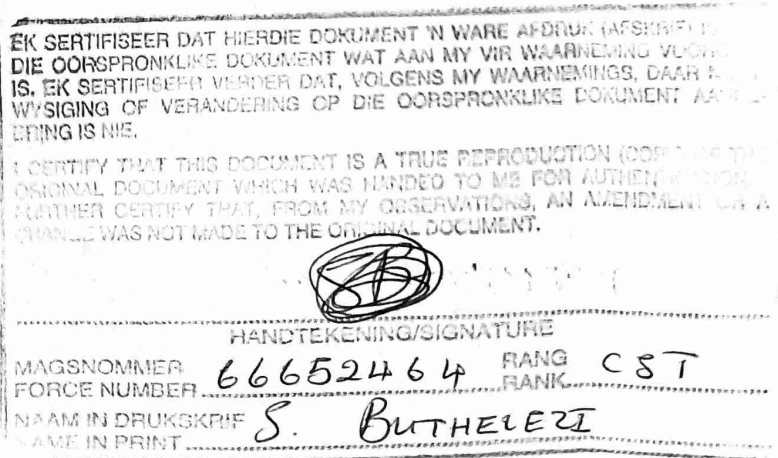 EK SERTIFISEER DAT HIERDIE DOKUMENT 'N WARE AFDRUK (AFSKRIF) IS
DIE OORSPRONKLIKE DOKUMENT WAT AAN MY VIR WAARNEMING
IS. EK SERTIFISEER VERDER DAT, VOLGENS MY WAARNEMINGS, DAAR
WYSIGING OF VERANDERING OP DIE OORSPRONKLIKE DOKUMENT
IS NIE.
I CERTIFY THAT THIS DOCUMENT IS A TRUE REPRODUCTION (COPY) OF THE
ORIGINAL DOCUMENT WHICH WAS HANDED TO ME FOR AUTHENTICATION.
FURTHER CERTIFY THAT, FROM MY OBSERVATIONS, AN AMENDMENT OR A
CHANGE WAS NOT MADE TO THE ORIGINAL DOCUMENT.
SB
HANDTEKENING/SIGNATURE
MAGSNOMMER RANG
FORCE NUMBER 66652464 RANK CST
NAAM IN DRUKSKRIF
NAME IN PRINT S. BUTHELEZI